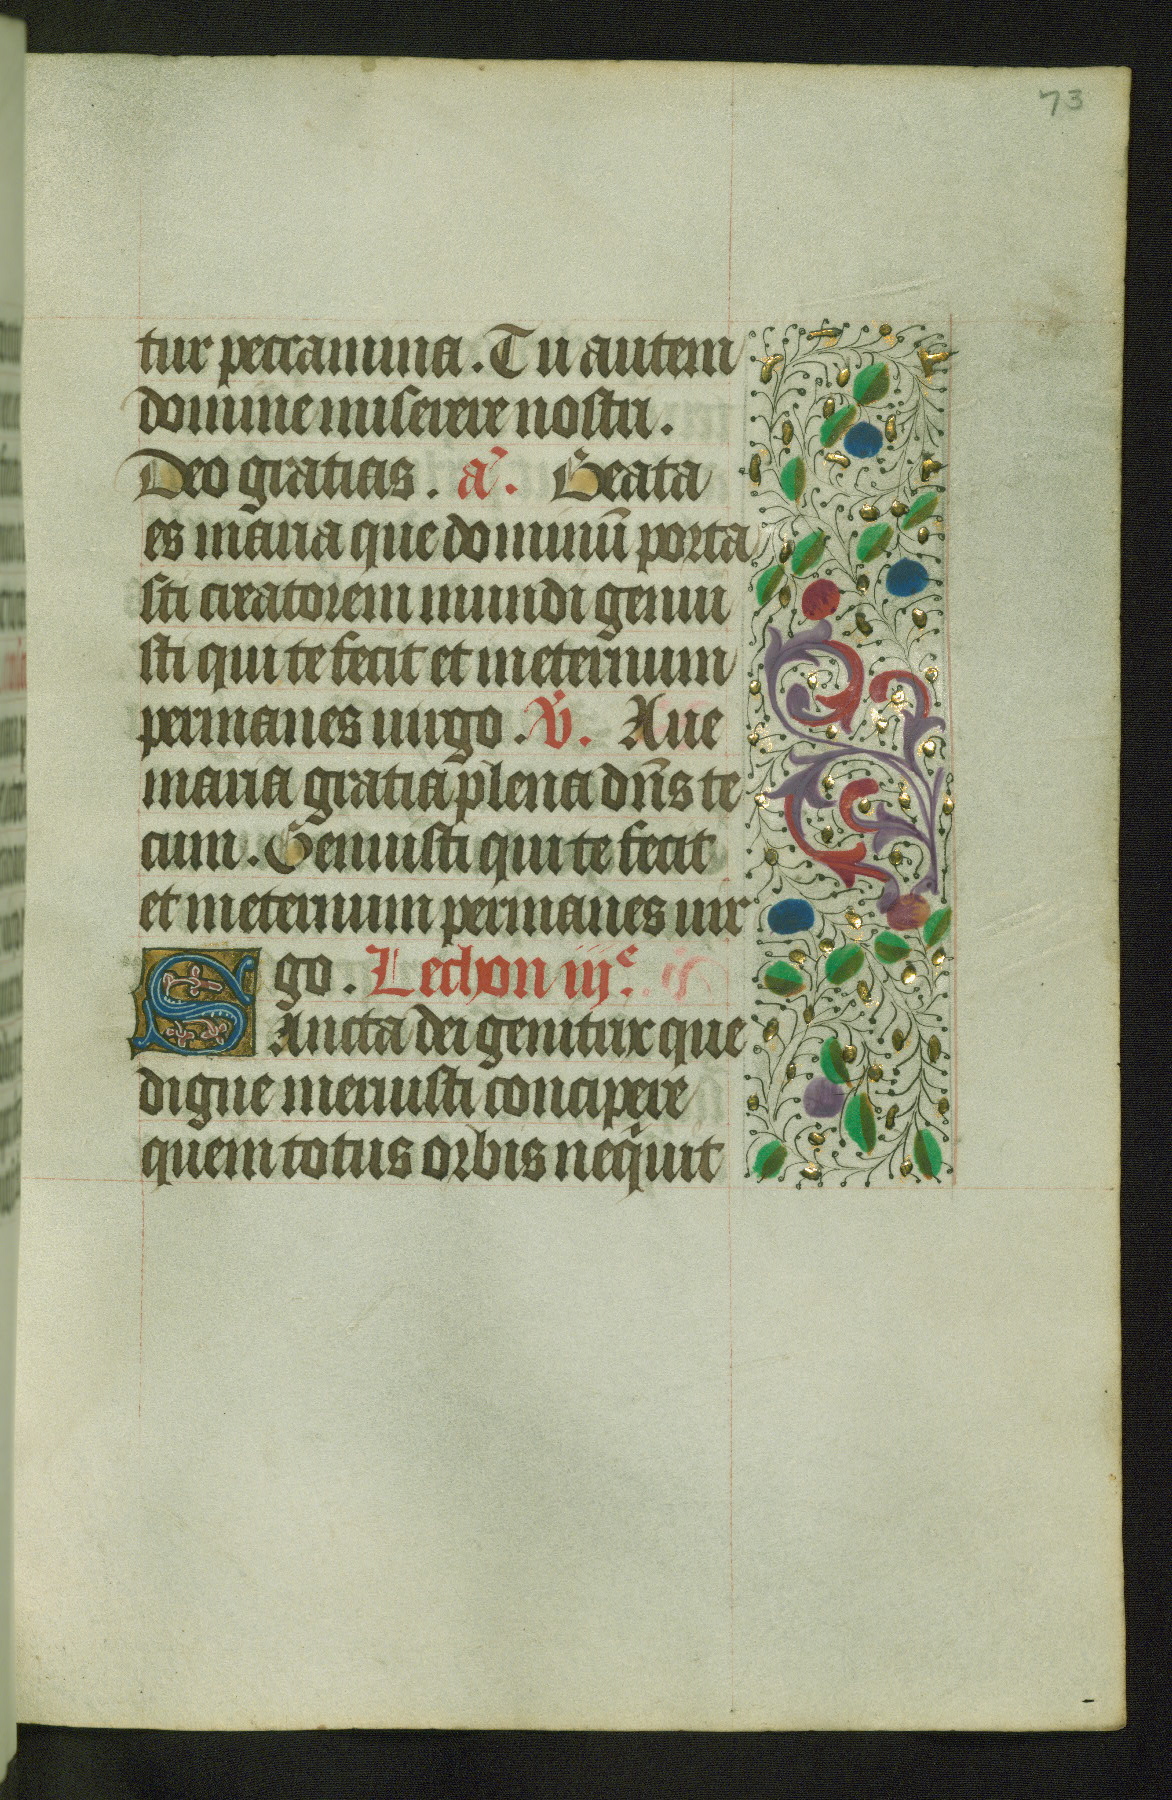 73
tur peccamina. Tu autem
domine miserere nostri.
Deo gratias. a'. Beata
es maria que dominū porta
sti creatorem mundi genui
sti qui te fecit et ineternum
permanes uirgo. v̄. Aue
maria gratia plena dn̄s te
cum. Genuisti qui te fecit
et ineternum permanes uir
go. Lechon iijᵉ.
Sancta dei genitrix que
digne meruisti concipere
quem totus orbis neq̇uit